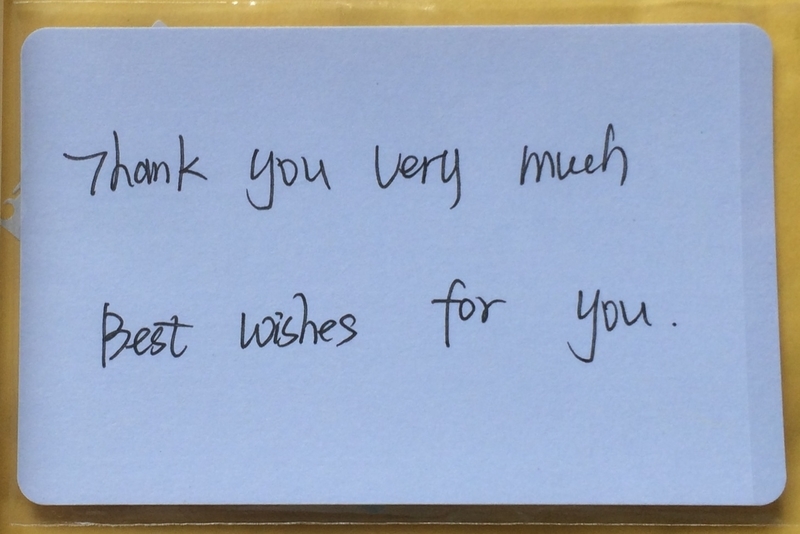 Thank you very much
Best wishes for you.